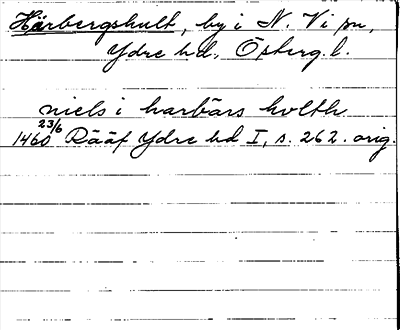 Härbergshult, by i N. Vi sn,
Ydre hd, Österg. l.
niels i harbärs holth
1460 23/6 Rääf Ydre hd I, s. 262. orig.